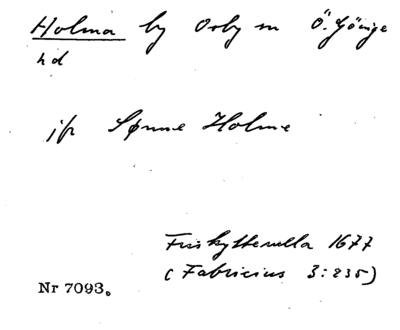 Holma by Orby sn Ö. Göinge
hd
jfr Spnne Holme
Friskytterulla 1677
(Fabricius 3:235)
Nr 7093.